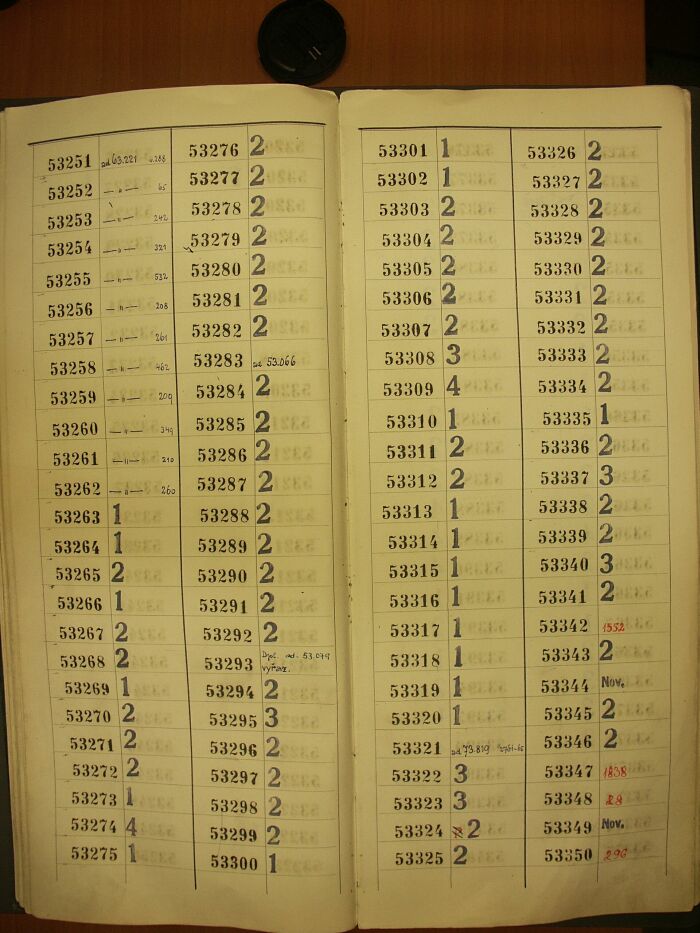 53251 ad 63.221 288
53252 —"— 65
53253 —"— 242
53254 —"— 321
53255 —"— 532
53256 —"— 208
53257 —"— 261
53258 —"— 462
53259 —"— 209
53260 —"— 349
53261 —"— 210
53262 —"— 260
53263 1
53264 1
53265 2
53266 1
53267 2
53268 2
53269 1
53270 2
53271 2
53272 2
53273 1
53274 4
53275 1
53276 2
53277 2
53278 2
53279 2
53280 2
53281 2
53282 2
53283 ad 53.066
53284 2
53285 2
53286 2
53287 2
53288 2
53289 2
53290 2
53291 2
53292 2
53293 ad. 53.079
53294 2
53295 3
53296 2
53297 2
53298 2
53299 2
53300 1
53301 1
53302 1
53303 2
53304 2
53305 2
53306 2
53307 2
53308 3
53309 4
53310 1
53311 2
53312 2
53313 1
53314 1
53315 1
53316 1
53317 1
53318 1
53319 1
53320 1
53321 ad 73.819
53322 3
53323 3
53324 2
53325 2
53326 2
53327 2
53328 2
53329 2
53330 2
53331 2
53332 2
53333 2
53334 2
53335 1
53336 2
53337 3
53338 2
53339 2
53340 3
53341 2
53342 1552
53343 2
53344 Nov.
53345 2
53346 2
53347 1838
53348 28
53349 Nov.
53350 296